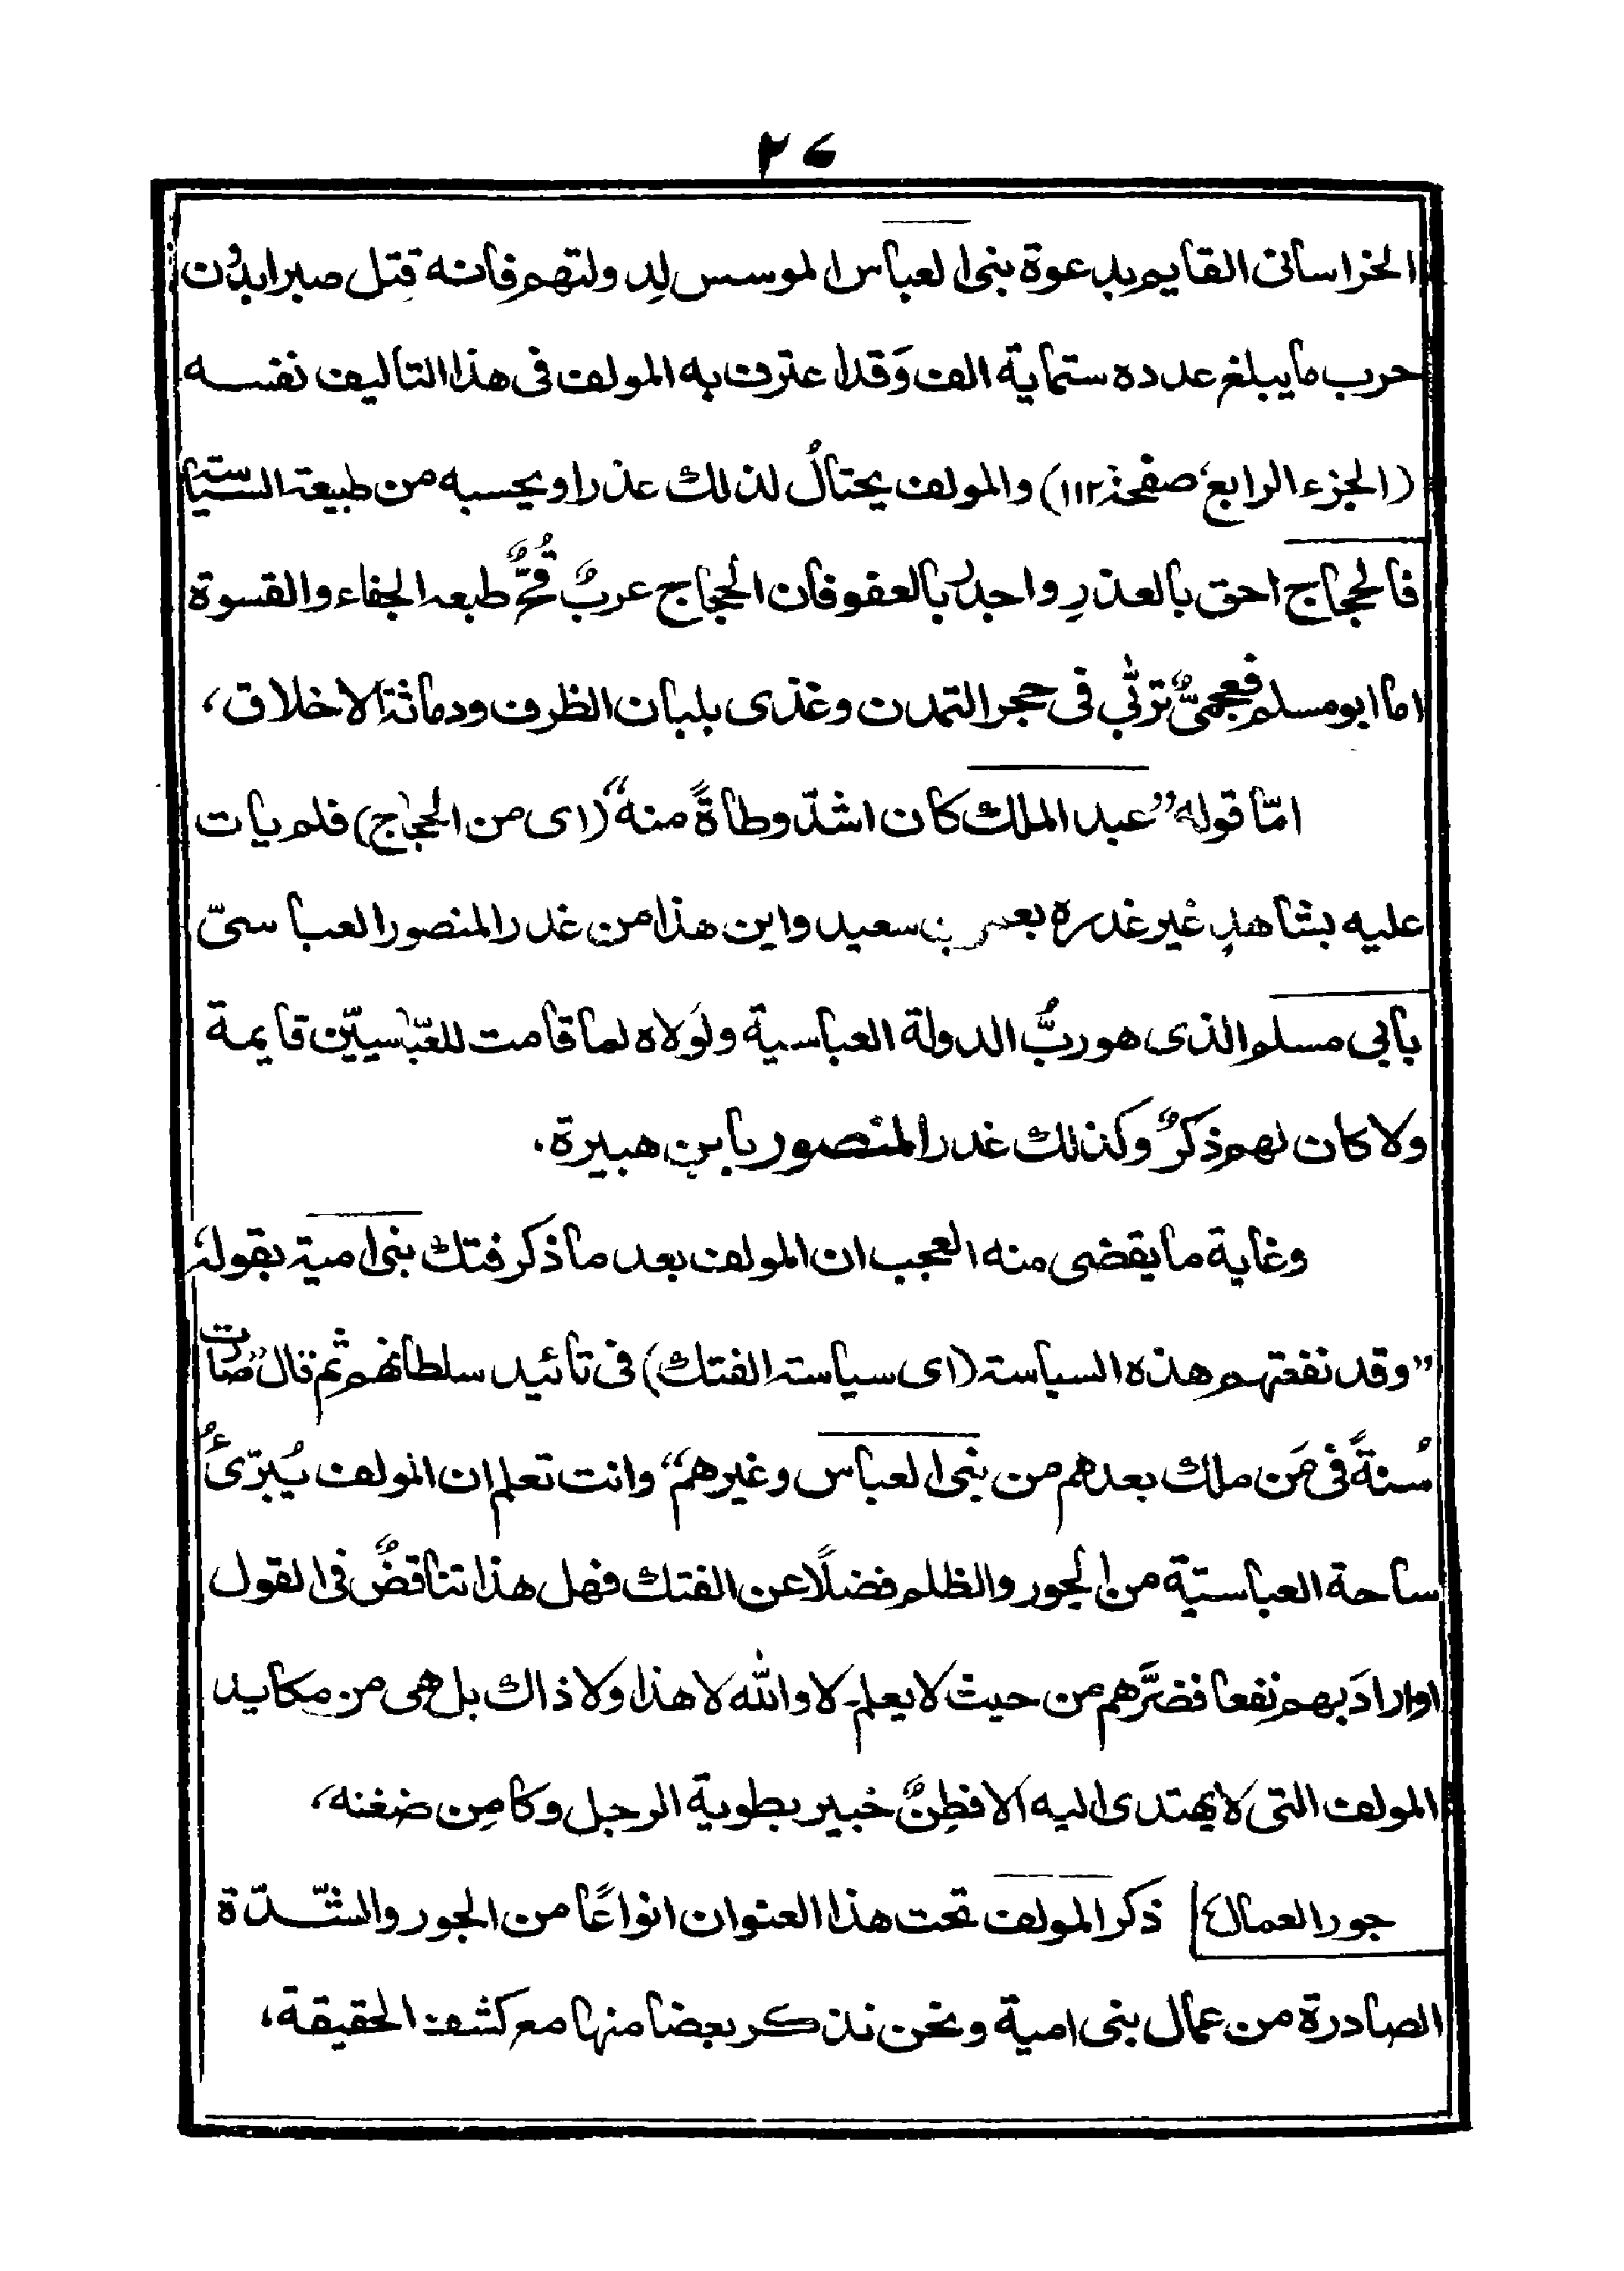 ٢٦
الخراسانى القايم بدعوة بنى العباس الموسس لدولتهم فانه قتل صبرا بدون
حرب ما يبلغ عدده ستماية الف وَقد اعترف به المولف فى هذا التاليف نفسه
(الجزء الرابع، صفحة ١١٢) والمولف يحتالُ لذلك عذرا ويحسبه من طبيعة السياسة
فالحجاج احق بالعذرِ واجدرُ بالعفو فان الحجاج عربٌ قُحٌّ طبعه الجفاء والقسوة
اما ابو مسلم فعجمىٌّ تربّٰى فى حجر التمدن وغذى بلبان الظرف ودماثة الاخلاق،
امّا قوله "عبد الملك كان اشدّ وطاةً منه" (اى من الحجاج) فلم يات
عليه بشاهدٍ غير غدره بعمر بن سعيد واين هذا من غدر المنصور العباسىّ
بابى مسلم الذى هو ربُّ الدولة العباسية ولَولاه لما قامت للعبّاسيّين قايمة
ولا كان لهم ذكرٌ وكذلك غدر المنصور بابن هبيرة.
وغاية ما يقضى منه العجب ان المولف بعد ما ذكر فتك بنى امية بقوله
"وقد نفعتهم هذه السياسة (اى سياسة الفتك) فى تائيد سلطانهم ثم قال" صارت
سُنةً فى مَن ملك بعدهم من بنى العباس وغيرهم" وانت تعلم ان المولف يُبرّىءُ
ساحة العباسيّة من الجور والظلم فضلًا عن الفتك فهل هذا تناقضٌ فى القول
او ارادَ بهم نفعا فضرَّهم من حيث لا يعلم۔ لا والله لا هذا ولا ذاك بل هى من مكايد
المولف التى لا يهتدى اليه الا فطِنٌ خبير بطوية الرجل وكامِن ضغنه،
جور العمال ذكر المولف تحت هذا العنوان انواعًا من الجور والشّدّة
الصادرة من عمال بنى امية ونحن نذكر بعضا منها مع كشف الحقيقة،